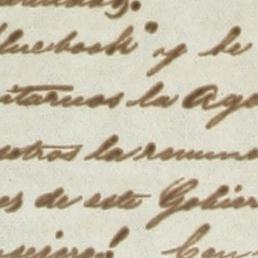 bluebook" y he
itarnos la Age
sotros la remune
es de este Gobier